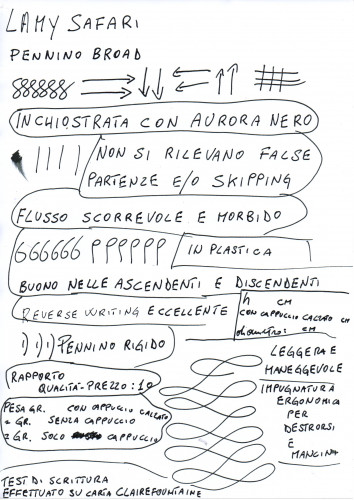 LAMY SAFARI
PENNINO BROAD
INCHIOSTRATA CON AURORA NERO
NON SI RILEVANO FALSE
PARTENZE E/O SKIPPING
FLUSSO SCORREVOLE E MORBIDO
666666 PPPPPP IN PLASTICA
BUONO NELLE ASCENDENTI E DISCENDENTI
REVERSE WRITING ECCELLENTE
h CM
CON CAPPUCCIO CALZATO CM
diametro: CM
PENNINO RIGIDO
LEGGERA E
MANEGGEVOLE
RAPPORTO
QUALITÀ-PREZZO: 10
IMPUGNATURA
ERGONOMICA
PER
DESTRORSI
E
MANCINI
PESA GR. CON CAPPUCCIO CALZATO
= GR. SENZA CAPPUCCIO
= GR. SOLO CAPPUCCIO
TEST DI SCRITTURA
EFFETTUATO SU CARTA CLAIREFOUNTAINE